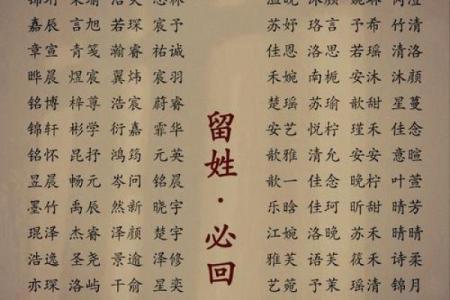 嘉辰 言旭 若琛 宸予
章宣 青笺 瀚睿 祐诚
晔晨 煜宸 翼炜 宸羽
铭博 梓尊 浩宸 蔚睿
锦轩 彬学 衍嘉 霏华
铭怀 昆抒 鸿筠 元英
昱晨 畅元 岑问 铭晨
墨竹 禹辰 然新 晓宇
琨泽 杰睿 泽颜 楚宇
浩逸 圣尧 景逾 泽修
亦琛 洛屿 千俞 星奕
留姓·必回
苏妤 沐颜 予希 竹清
佳恩 洛恩 若瑶 清洛
禾婉 南栀 安沐 沐颜
楚瑶 苏瑜 歆甜 星蔓
安艺 悦柠 瑾禾 佳念
歆雅 清允 安安 意暄
歆一 佳念 晚柠 叶萱
乐晗 佳珂 昕甜 晴芳
江婉 洛晚 苏禾 晴晴
雅芙 语芙 筱禾 诗柔
艺菀 予茉 若瑶 锦月